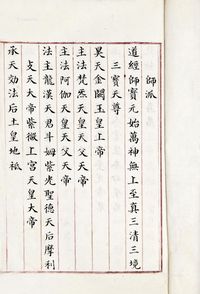 師派
道經師寶元始萬神無上至真三清三境
三寶天尊
昊天金闕玉皇上帝
主法梵炁天皇天父天帝
主法阿伽天皇天父天帝
法主龍漢天君斗姆紫光聖德天后摩利
支天大帝紫微上宮天皇大帝
承天効法后土皇地祇